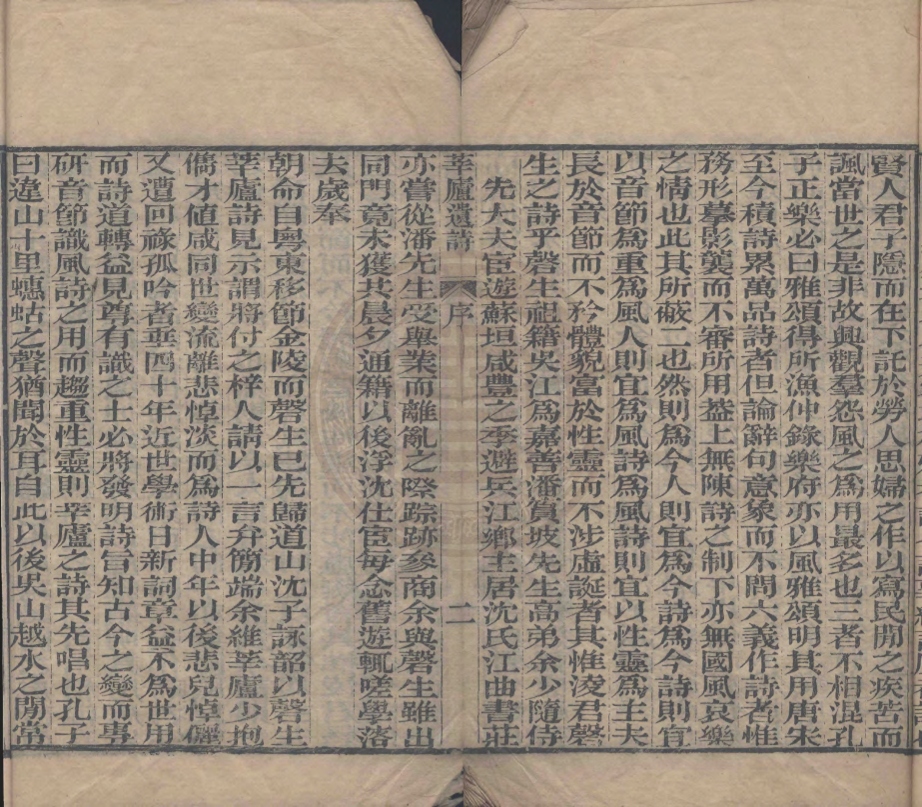 賢人君子隱而在下託於勞人思婦之作以寫民閒之疾苦而
諷當世之是非故興觀羣怨風之爲用最多也三者不相混孔
子正樂必曰雅頌得所漁仲錄樂府亦以風雅頌明其用唐宋
至今積詩累萬品詩者但論辭句意象而不問六義作詩者惟
務形摹影襲而不審所用葢上無陳詩之制下亦無國風哀樂
之情也此其所蔽二也然則爲今人則宜爲今詩爲今詩則宜
以音節爲重爲風人則宜爲風詩爲風詩則宜以性靈爲主夫
長於音節而不矜體貌富於性靈而不涉虛誕者其惟淩君磬
生之詩乎磬生祖籍吳江爲嘉善潘簣坡先生高弟余少隨侍
先大夫宦遊蘇垣咸豐之季避兵江鄉主居沈氏江曲書莊
莘廬遺詩 序 二
亦嘗從潘先生受舉業而離亂之際踪跡參商余與磬生雖出
同門竟未獲共晨夕通籍以後浮沈仕宦每念舊遊輒嗟學落
去歲奉
朝命自粵東移節金陵而磬生已先歸道山沈子詠韶以磬生
莘廬詩見示謂將付之梓人請以一言弁簡端余維莘廬少抱
儁才値咸同世變流離悲悼淡而爲詩人中年以後悲兒悼儷
又遭回祿孤吟者垂四十年近世學術日新詞章益不爲世用
而詩道轉益見尊有識之士必將發明詩旨知古今之變而專
研音節識風詩之用而趨重性靈則莘廬之詩其先唱也孔子
曰違山十里蟪蛄之聲猶聞於耳自此以後吳山越水之閒當